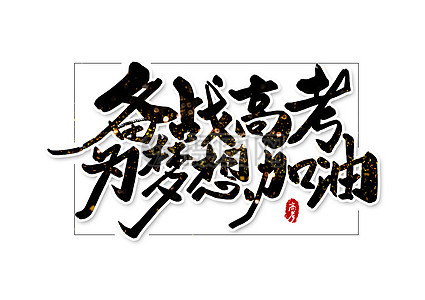 备战高考
为梦想加油